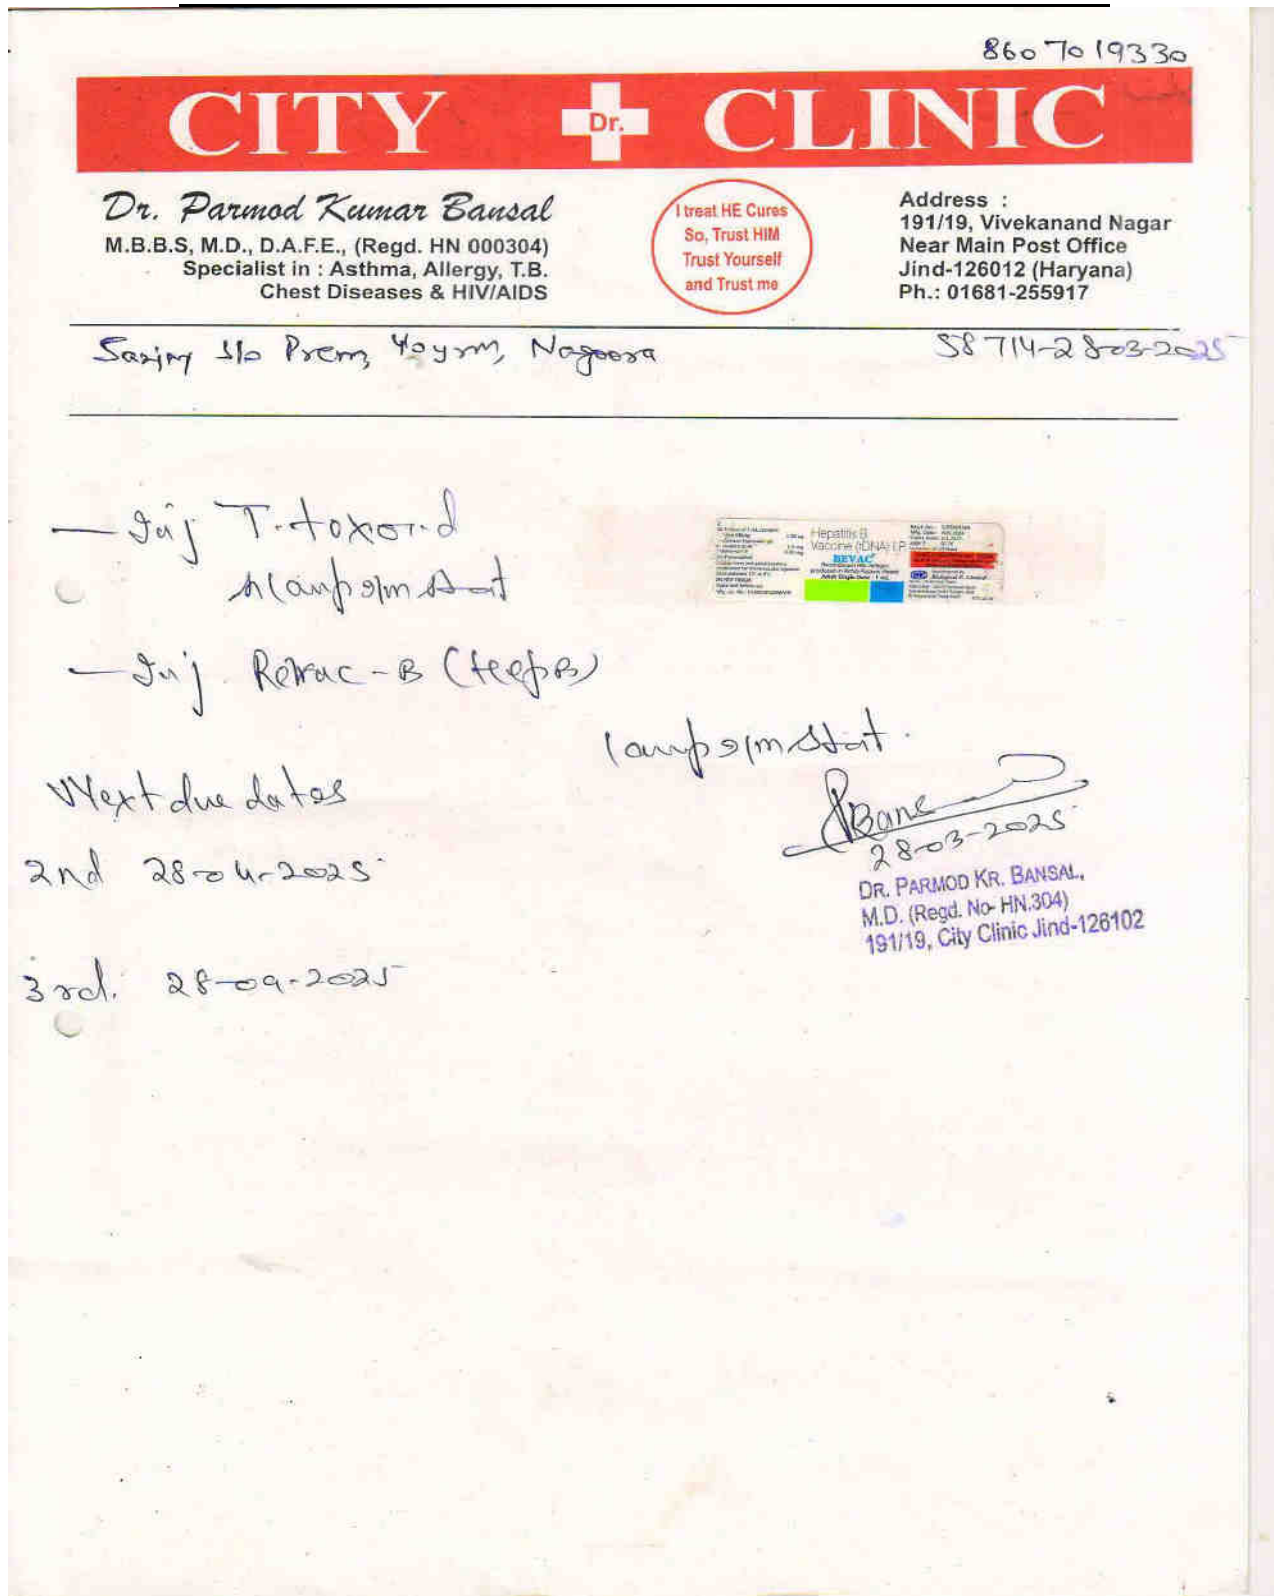 8607019330
CITY Dr. CLINIC
Dr. Parmod Kumar Bansal
M.B.B.S, M.D., D.A.F.E., (Regd. HN 000304)
Specialist in : Asthma, Allergy, T.B.
Chest Diseases & HIV/AIDS
I treat HE Cures
So, Trust HIM
Trust Yourself
and Trust me
Address :
191/19, Vivekanand Nagar
Near Main Post Office
Jind-126012 (Haryana)
Ph.: 01681-255917
S/o Prem, 40yrm, Nagoora
58714-28-03-2025
- Inj T.toxoid
1amp I/m Stat
Hepatitis B
Vaccine (rDNA) I.P.
BEVAC
Adult Single Dose : 1 mL
- Inj. Revac-B (HepB)
1amp I/m Stat.
Next due dates
28-03-2025
2nd 28-04-2025
DR. PARMOD KR. BANSAL,
M.D. (Regd. No- HN.304)
191/19, City Clinic Jind-126102
3rd. 28-09-2025